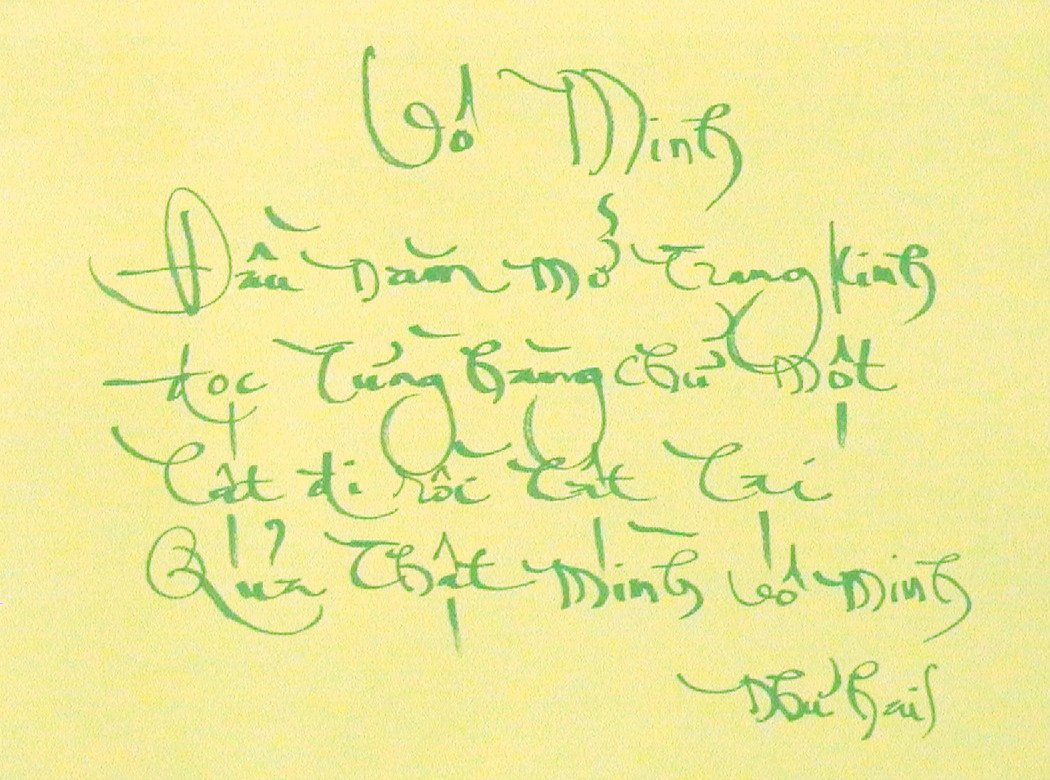 Vô Minh
Đầu năm mở trang kinh
đọc từng hàng chữ một
Lật đi rồi lật lại
Quả thật mình vô minh
Như